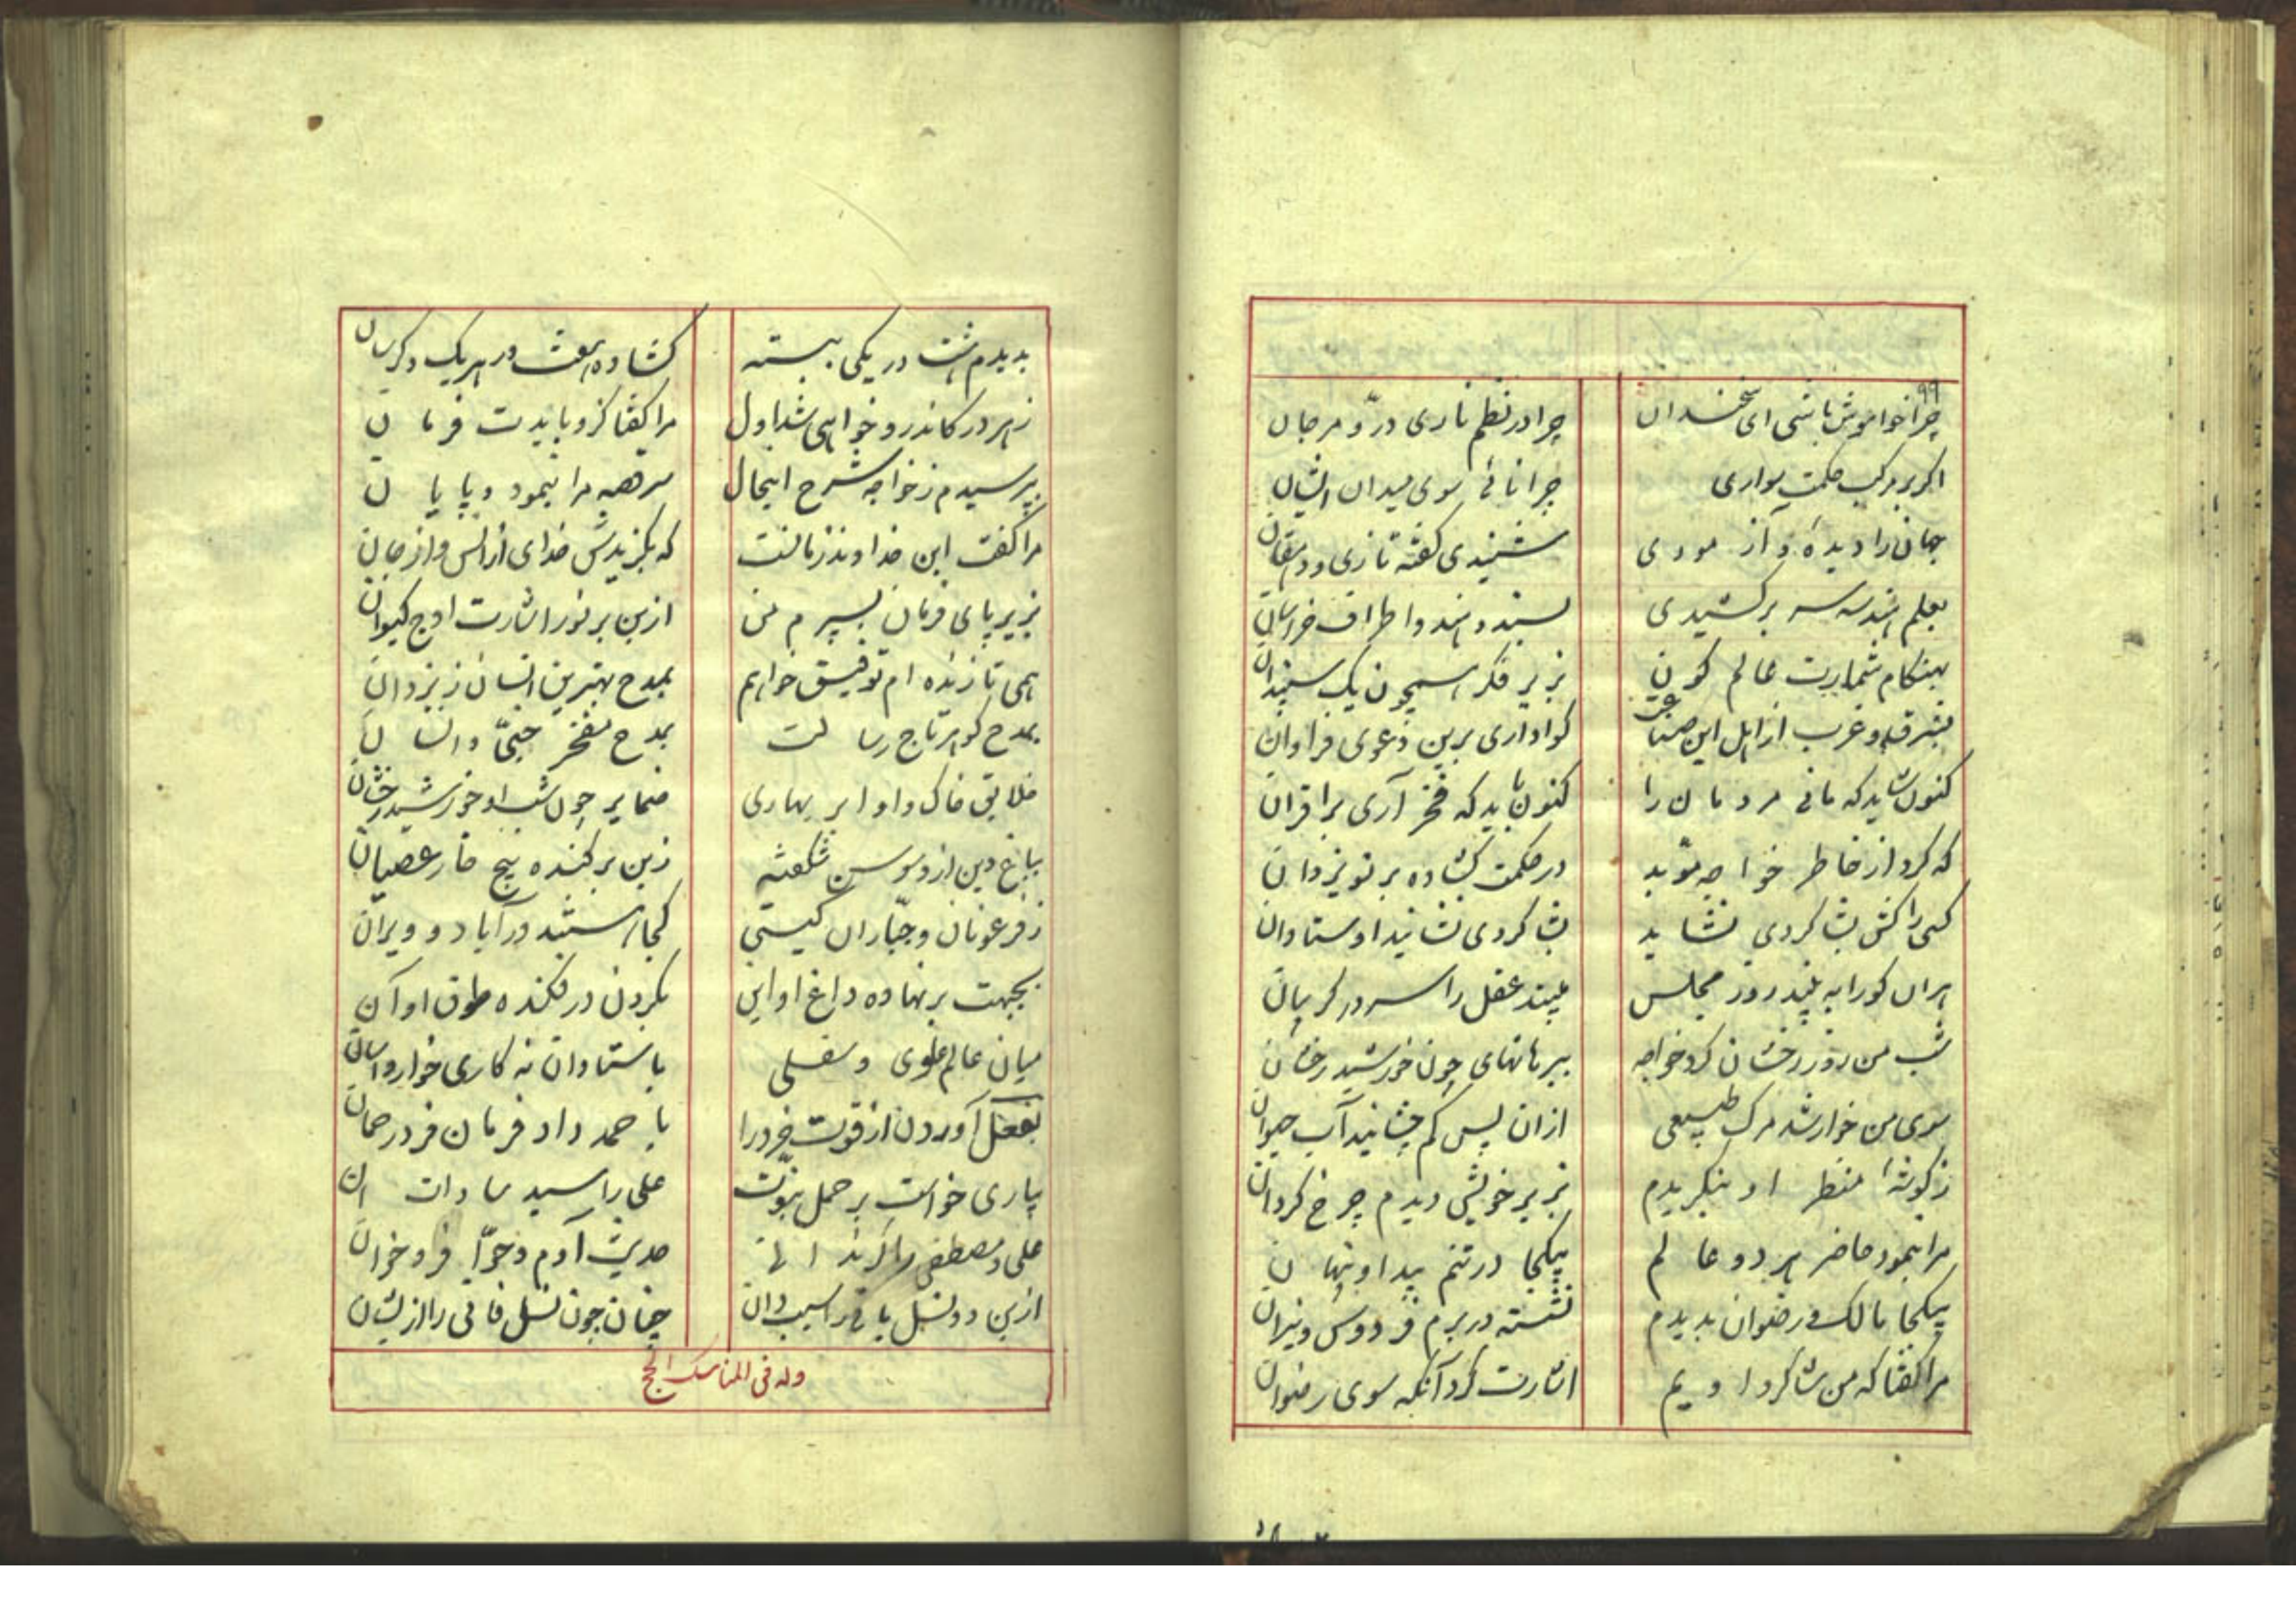 ۹۹
چرا خواموش باشی ای سخندان چرا در نظم ناری درّ و مرجان
اگر بر مرکب حکمت سواری چرا نائی سوی میدان ایشان
جهان را دیده و آزمودی شنیدی گفته تازی و دهقان
بعلم هندسه سر برکشیدی بسند و هند و اطراف خراسان
بهنگام شمارت عالم کون بزیر فکر همچون یک سپندان
بشرق و غرب از اهل این صناعت گوا داری برین دعوی فراوان
کنون شاید که مانی مردمان را کنون باید که فخر آری بر اقران
که کرد از خاطر خواجه مؤید در حکمت گشاده بر تو یزدان
کسی را کش شاگردی نشاید شاگردی نشانید اوستادان
هران کو را به بیند روز مجلس ببیند عقل را سر در گریبان
شب من روز رخشان کرد خواجه ببرهانهای چون خورشید رخشان
سوی من خوار شد مرگ طبیعی ازان پس کم چشانید آب حیوان
ز گوشهٔ منظر او بنگریدم بزیر خویش دیدم چرخ گردان
مرا بنمود حاضر هر دو عالم بیکجا در تنم پیدا و پنهان
بیکجا مالک و رضوان بدیدم نشسته در برم فردوس و نیران
مرا گفتا که من شاگرد اویم اشارت کرد آنگه سوی رضوان
بدیدم هشت در یکی ببسته گشاده هفت در هریک دگرسان
ز هر در کاندرو خواهی شد اول مرا گفتا کزو بایدت فرمان
بپرسیدم ز خواجه شرح اینحال سرهمه مرا بنمود و پایان
مرا گفت این خداوند زمانست که بگزیدش خدای از انس و از جان
بزیر پای فرمان بسپرم من ازین بر نور اشارت اوج کیوان
همی تا زنده ام توفیق خواهم بمدح بهترین انسان ز یزدان
بمدح گوهر تاج رسالت بمدح مفخر جنّی و انسان
خلایق خاک و او ابر بهاری ضمایر چون شب او خورشید رخشان
بباغ دین ازو سوسن شکفته زبن برکنده بیخ خار عصیان
ز فرعونان و جبّاران گیتی کجا هستند در آباد و ویران
بجبهت بر نهاده داغ او این بگردن در فکنده طوق او آن
میان عالم علوی و سفلی باستادان نه کاری خوار و آسان
بفعل آوردن از قوت خرد را باحمد داد فرمان فرد رحمان
بیاری خواست بر حمل نبوّت علی را سید سادات
علی و مصطفی را حدیث آدم و حوّا فرو خوان
ازین دو نسل باقی را سبب دان چنان چون نسل فانی را از ایشان
وله فی المناسک الحج